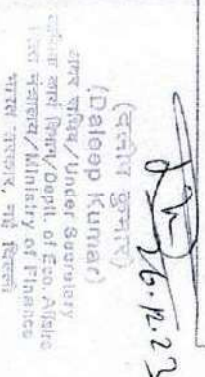 26.12.23
(दलीप कुमार)
(Daleep Kumar)
अवर सचिव/Under Secretary
आर्थिक कार्य विभाग/Deptt. of Eco. Affairs
वित्त मंत्रालय/Ministry of Finance
भारत सरकार, नई दिल्ली